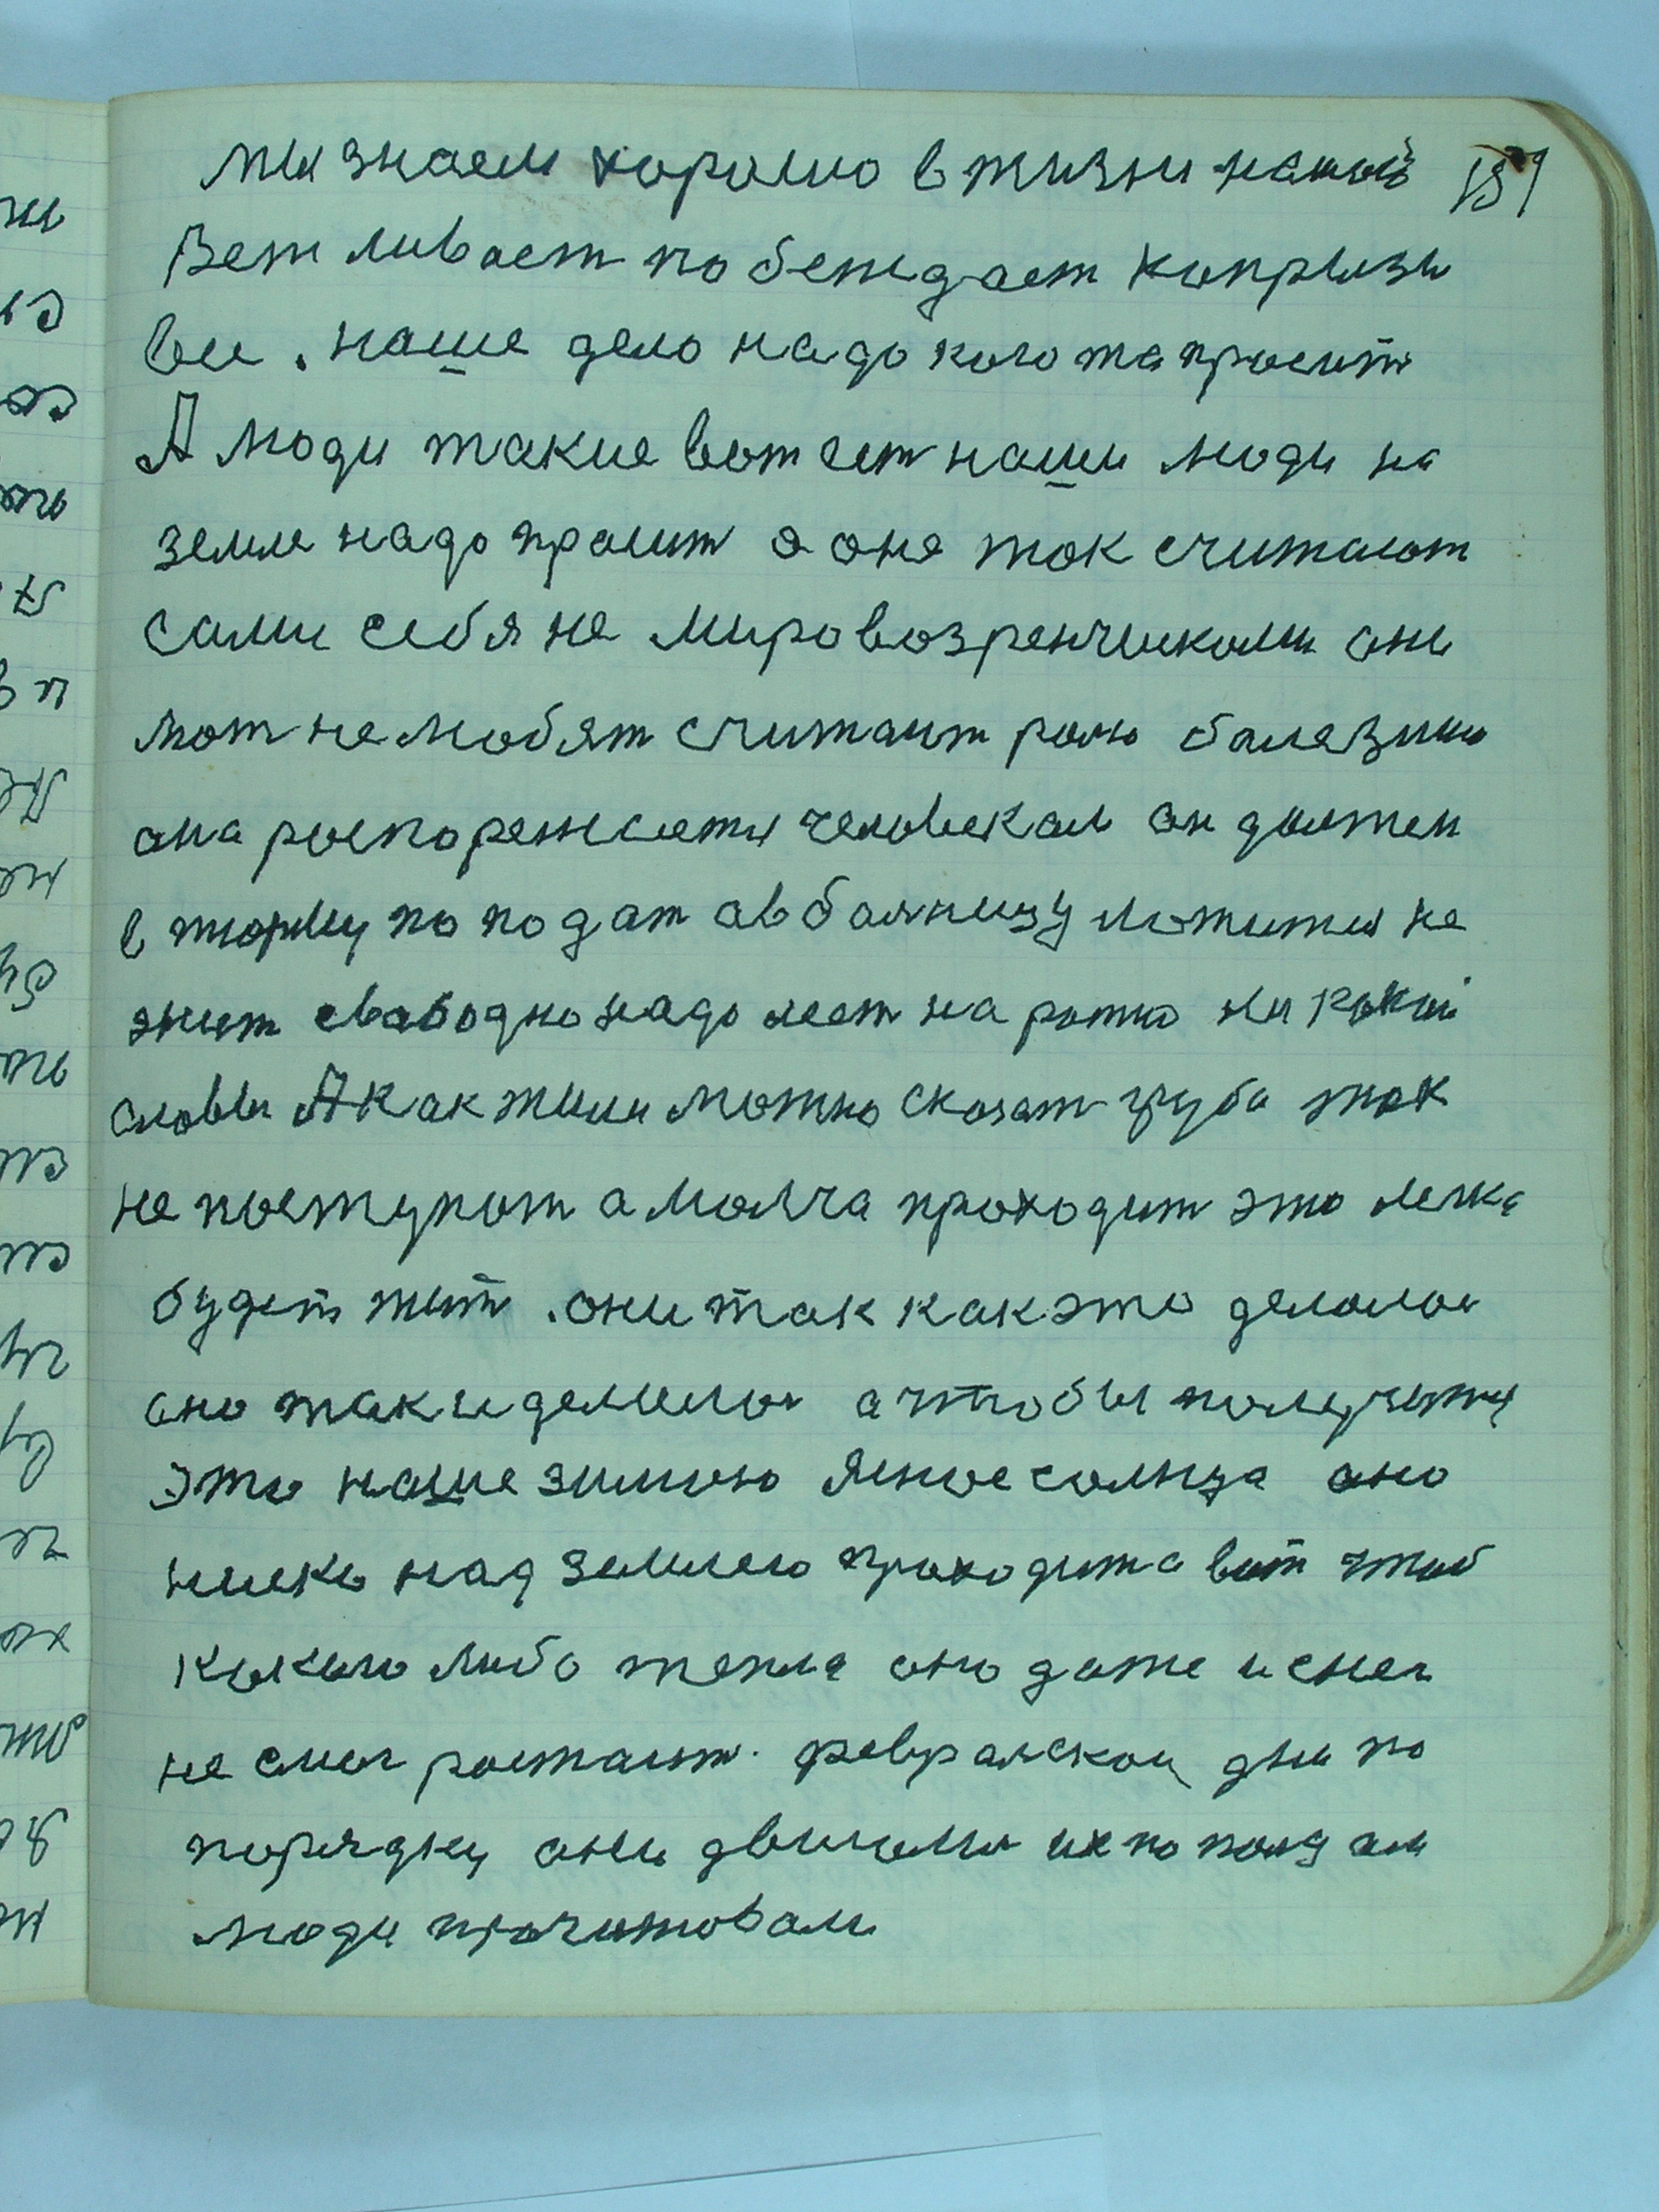 мы знаем хорошо в жизни нашой 151
Вежливаст побеждает капризы
все. наше дело надо кого та просить
А люди такие вот ест наши люди на
земле надо просит а оне так считают
сами себя не мировозренчиками они
мот не любят считаит ролю балезнию
она роспорежаетя человекам он должен
в тюрму по подат а в балницу ложится не
жит свабодно надо лест на ротно ни какой
словы А как жили можно сказат груба так
не поступат а молча проходит это легка
будет жить. они так как это делалос
оно так и делилос а чтобы получитя
это наше зимою ясное солнца оно
низко над землею проходит а вот чтоб
какого либо тепла оно даже и снег
не смог ростаит. февральской дни по
порядку они двигалис их по полд ам
люди прочитовали